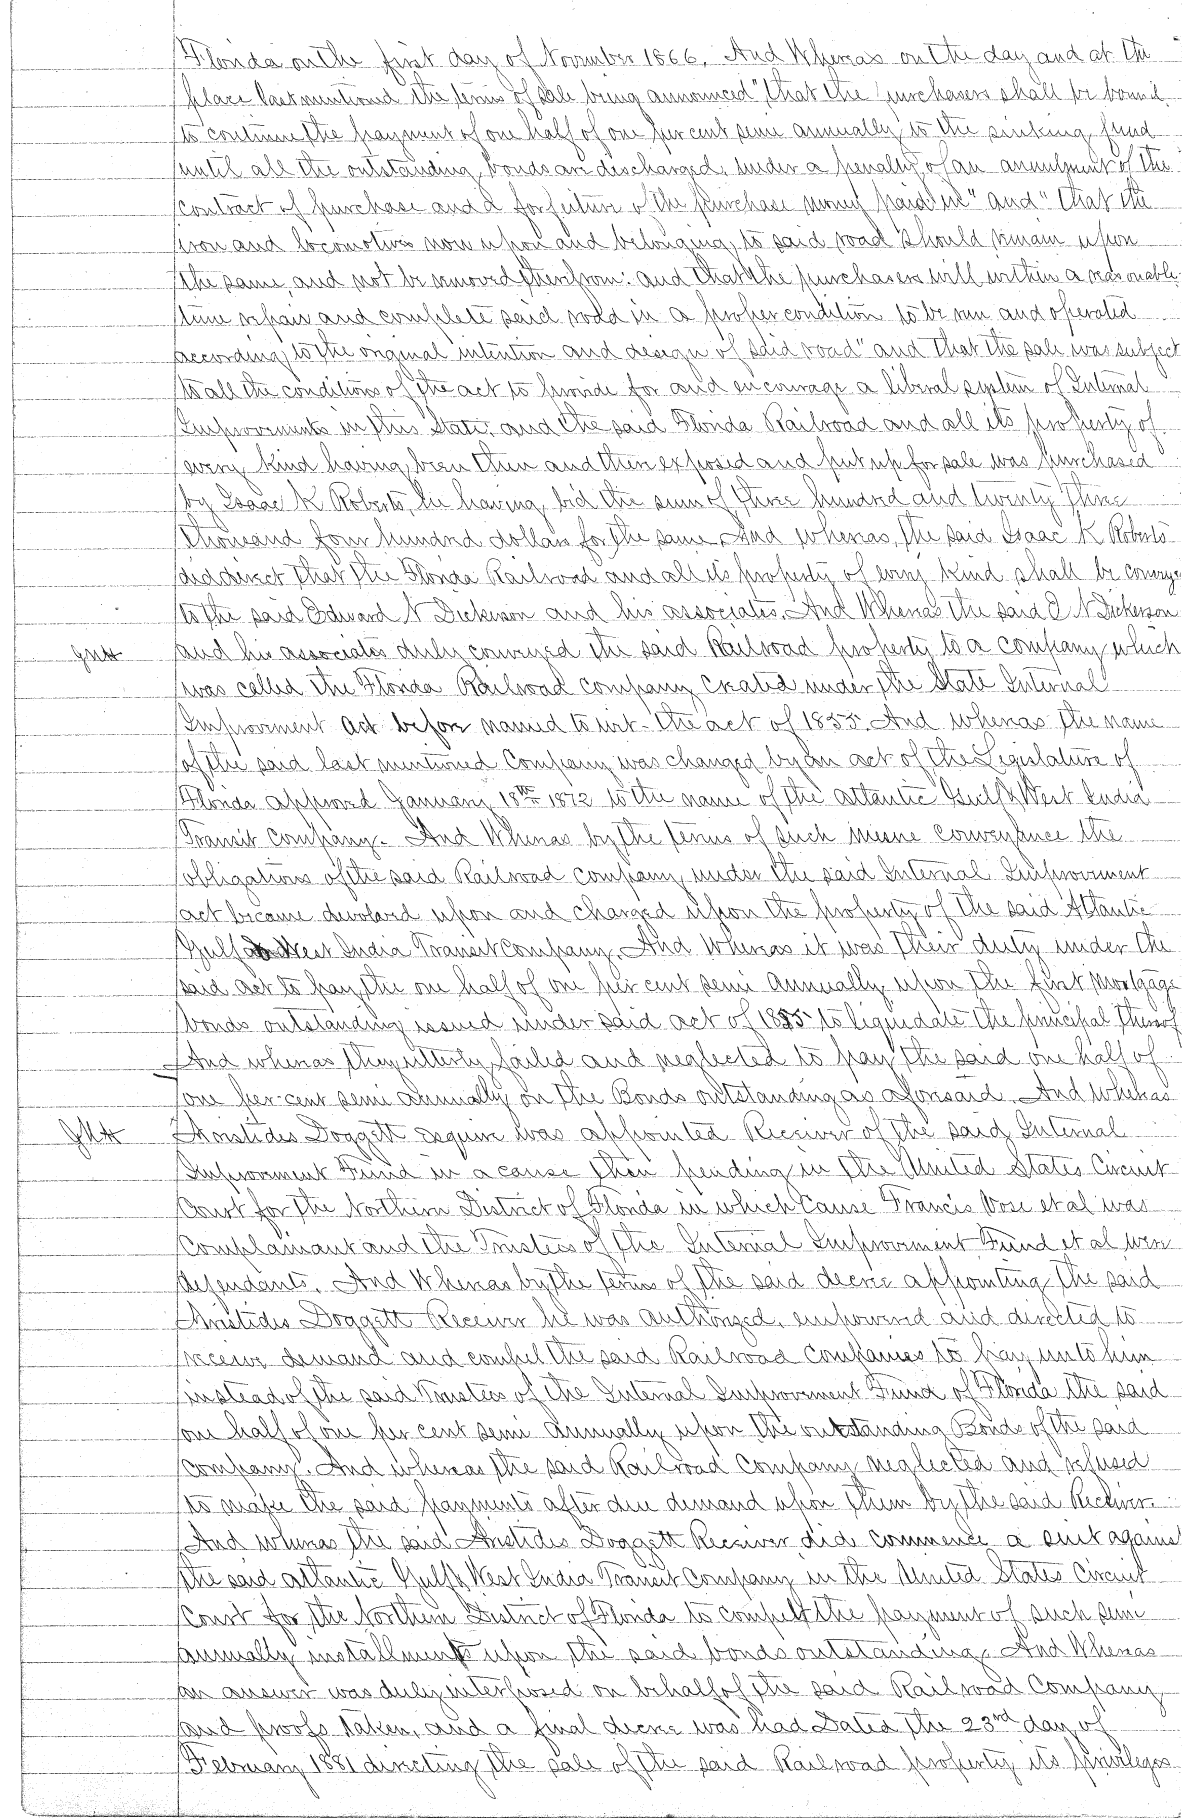 Florida on the first day of November 1866. And Whereas on the day and at the
place last mentioned the terms of sale being announced "that the purchasers shall be bound
to continue the payment of one half of one per cent semi annually to the sinking fund
until all the outstanding bonds are discharged, under a penalty of an annulment of the
contract of purchase and a forfeiture of the purchase money paid in" and "that the
iron and locomotives now upon and belonging to said road should remain upon
the same, and not be removed therefrom: and that the purchasers will within a reasonable
time repair and complete said road in a proper condition to be run and operated
according to the original intention and design of said road" and that the sale was subject
to all the conditions of the act to provide for and encourage a liberal system of Internal
Improvements in this State, and the said Florida Railroad and all its property of
every kind having been then and there exposed and put up for sale was purchased
by Isaac K Roberts, he having bid the sum of three hundred and twenty three
thousand four hundred dollars for the same. And whereas, the said Isaac K Roberts
did direct that the Florida Railroad and all its property of every kind shall be conveye
to the said Edward N Dickerson and his associates. And Whereas the said E N Dickerson
and his associates duly conveyed the said Railroad property to a company which
was called the Florida Railroad company created under the State Internal
Improvement act before named to wit - the act of 1855. And whereas the name
of the said last mentioned Company was changed by an act of the Legislature of
Florida approved January 18th 1872 to the name of the Atlantic Gulf & West India
Transit Company. And Whereas by the terms of such mesne conveyance the
obligations of the said Railroad company under the said Internal Improvement
act became devolved upon and charged upon the property of the said Atlantic
Gulf and West India Transit Company. And whereas it was their duty under the
said act to pay the one half of one per cent semi annually upon the first Mortgage
bonds outstanding issued under said act of 1855 to liquidate the principal thereof
And whereas they utterly failed and neglected to pay the said one half of
one per cent semi annually on the Bonds outstanding as aforesaid. And whereas
Aristides Doggett esquire was appointed Receiver of the said Internal
Improvement Fund in a cause then pending in the United States Circuit
Court for the Northern District of Florida in which Cause Francis Vose et al was
Complainant and the Trustees of the Internal Improvement Fund et al were
defendants. And Whereas by the terms of the said decree appointing the said
Aristides Doggett Receiver he was authorized, empowered and directed to
receive demand and compel the said Railroad Companies to pay unto him
instead of the said Trustees of the Internal Improvement Fund of Florida the said
one half of one per cent semi annually upon the outstanding Bonds of the said
company. And whereas the said Railroad Company neglected and refused
to make the said payments after due demand upon them by the said Receiver.
And whereas the said Aristides Doggett Receiver did commence a suit against
the said Atlantic Gulf & West India Transit Company in the United States Circuit
Court for the Northern District of Florida to compel the payment of such semi
annually installments upon the said bonds outstanding. And Whereas
an answer was duly interposed on behalf of the said Railroad Company
and proofs taken, and a final decree was had Dated the 23rd day of
February 1881 directing the sale of the said Railroad property its privileges